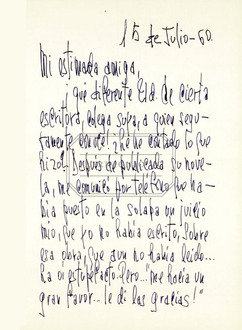 15 de Julio-60.
Mi estimada amiga,
¡qué diferente Ud. de cierta
escritora, colega suya, a quien segu-
ramente conoce! ¿he contado lo que
hizo? Después de publicada su nove-
la, me comunicó por teléfono que ha-
bía puesto en la solapa un juicio
mío, que yo no había escrito, sobre
esa obra, que aun no había leído...
estupefacto. Pero... "me hacía un
gran favor"... le di las gracias!"